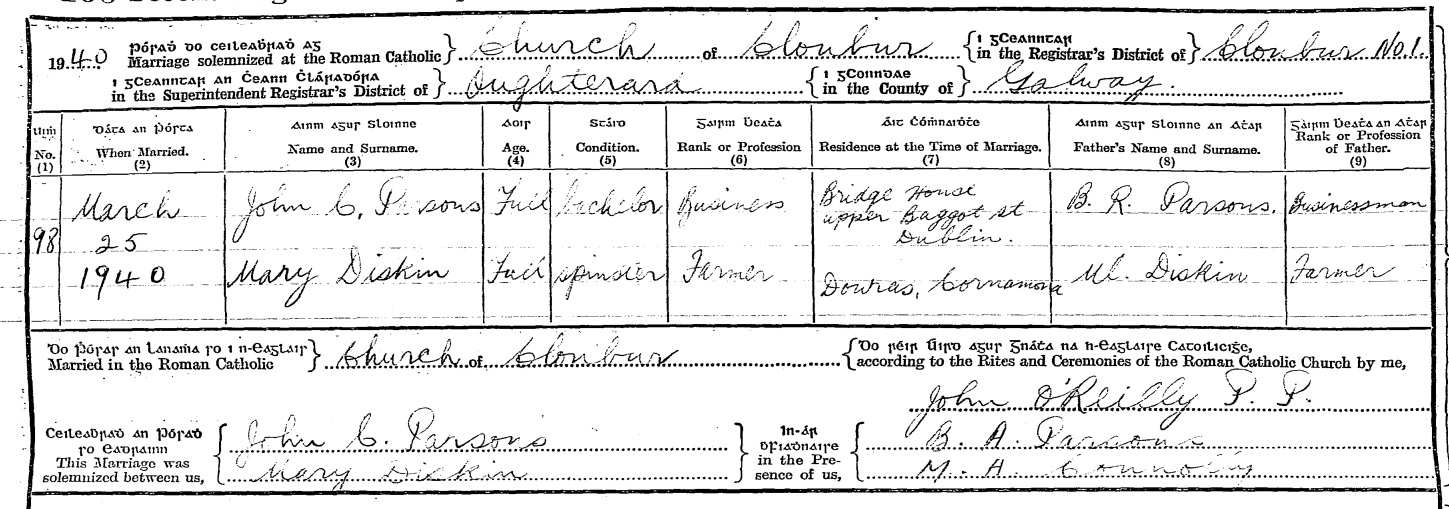 1940 Pósaḋ do ceileaḃraḋ ag
Marriage solemnized at the Roman Catholic } Church of Clonbur { i gCeanntar
in the Registrar's District of } Clonbur No.1.
i gCeanntar an Ċeann Ċláraḋóra
in the Superintendent Registrar's District of } Oughterard { i gConndae
in the County of } Galway.
Uiṁ No. (1)
Dáta an Ṗósta When Married. (2)
Ainm agus Sloinne Name and Surname. (3)
Aois Age. (4)
Stáid Condition. (5)
Gairm Ḃeaṫa Rank or Profession (6)
Áit Ċóṁnaiḋṫe Residence at the Time of Marriage. (7)
Ainm agus Sloinne an Aṫar Father's Name and Surname. (8)
Gairm Ḃeaṫa an Aṫar Rank or Profession of Father. (9)
98 March 25 1940
John C. Parsons Full bachelor Business Bridge House upper Baggot st Dublin. B. R. Parsons. Businessman
Mary Diskin Full spinster Farmer Douras, Cornamona Ml. Diskin Farmer
Do ṗósas an lánaṁa so i n-Eaglais
Married in the Roman Catholic } Church of Clonbur { Do réir Úird agus Gnáṫa na h-Eaglaise Catoilicíġe,
according to the Rites and Ceremonies of the Roman Catholic Church by me,
John O'Reilly P. P.
Ceileaḃraḋ an Pósaḋ
so eadrainn
This Marriage was
solemnized between us, { John C. Parsons
Mary Diskin
In-ár
ḃfiaḋnaire
in the Pre-
sence of us, { B. A. Parsons
M. A. Connolly